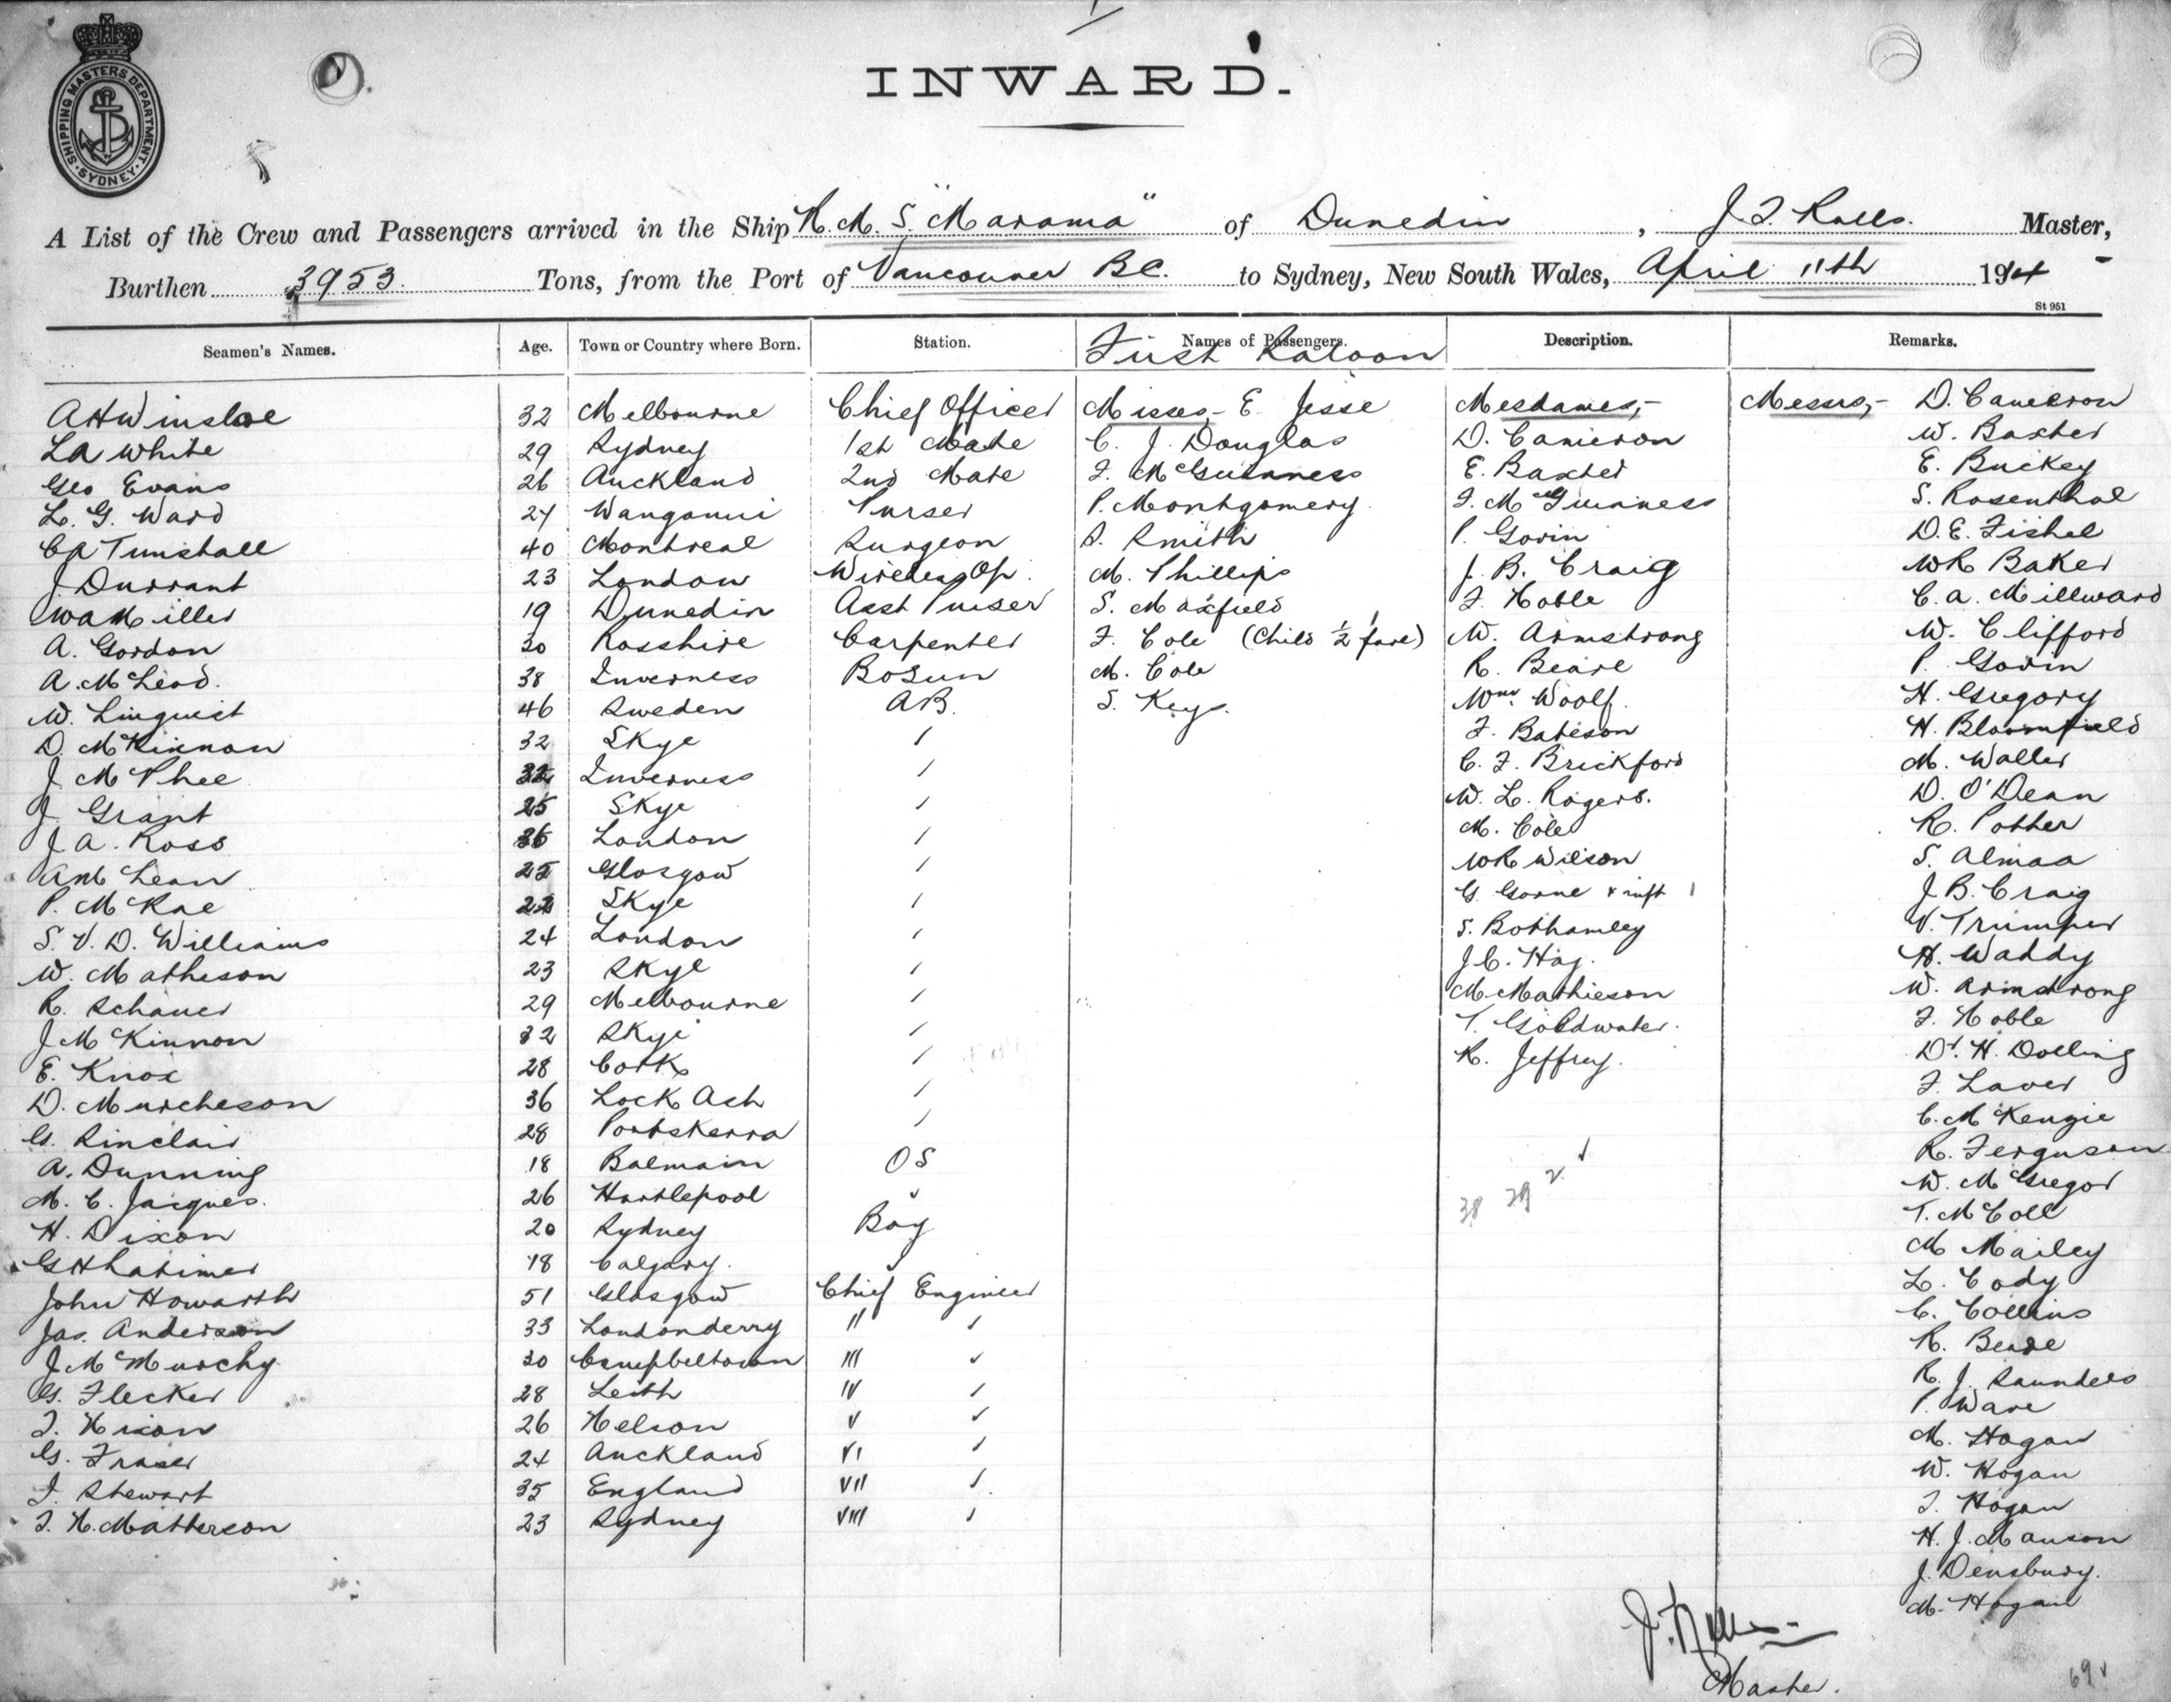 SHIPPING MASTERS DEPARTMENT · SYDNEY ·
INWARD.
A List of the Crew and Passengers arrived in the Ship R.M.S. "Marama" of Dunedin, J. F. Rolls. Master,
Burthen 3953. Tons, from the Port of Vancouver B.C. to Sydney, New South Wales, April 11th 1914
St 951
Seamen's Names. Age. Town or Country where Born. Station. Names of Passengers. Description. Remarks.
First Saloon
A H Winsloe 32 Melbourne Chief Officer Misses,- E. Jesse Mesdames,- Messrs,- D. Cameron
L A White 29 Sydney 1st Mate C. J. Douglas D. Cameron W. Baxter
Geo Evans 26 Auckland 2nd Mate F. McGuinness E. Baxter E. Buckey
L. G. Ward 24 Wanganui Purser P. Montgomery F. McGuinness S. Rosenthal
Tunstall 40 Montreal Surgeon S. Smith P. Gorin D. E. Fishel
J. Durrant 23 London Wireless Op. M. Phillips J. B. Craig W R Baker
W A Miller 19 Dunedin Asst Purser S. Maxfield F. Noble C. A. Millward
A. Gordon 30 Rosshire Carpenter F. Cole (Child 1/2 fare) W. Armstrong W. Clifford
A. McLeod. 38 Inverness Bosun M. Cole R. Beare P. Gorin
W. Linquist 46 Sweden AB. S. Keys. Woolf. H. Gregory
D. McKinnon 32 Skye / F. Bateson H. Bloomfield
J. McPhee Inverness / C. F. Brickford M. Waller
J. Grant 25 Skye / W. L. Rogers. D. O'Dean
J. A. Ross London / M. Cole R. Potter
A McLean Glasgow / W R Wilson S. Almaa
P. McRae Skye / G. Gorne & inft 1 J. B. Craig
S. V. D. Williams 24 London / S. Bothamley V. Trumper
W. Matheson 23 Skye / J. C. Hay. H. Waddy
R. Schauer 29 Melbourne / M. Mathieson W. Armstrong
J McKinnon 32 Skye / T. Goldwater. F. Noble
E. Knox 28 Cork / R. Jeffrey. Dr. H. Dolling
D. Murcheson 36 Lock Ash / F. Laver
G. Sinclair 28 Portskerra / C. McKenzie
A. Dunning 18 Balmain OS R. Ferguson
M. C. Jacques. 26 Hartlepool " W. McGregor
38 29 2 ✓
H. Dixon 20 Sydney Boy T. McColl
G H Latimer 18 Calgary. M Mailey
John Howarth 51 Glasgow Chief Engineer L. Cody
Jas. Anderson 33 Londonderry II / C. Collins
J. McMurchy 30 Campbeltown III / R. Beare
G. Flecker 28 Leith IV / R. J. Saunders
T. Nixon 26 Nelson V / P. Ware
G. Fraser 24 Auckland VI / M. Hogan
J. Stewart 35 England VII / W. Hogan
T. N. Matterson 23 Sydney VIII / J. Hogan
H. J. Manson
J. Densbury.
M. Hogan
J. F. Rolls
Master.
69 ✓